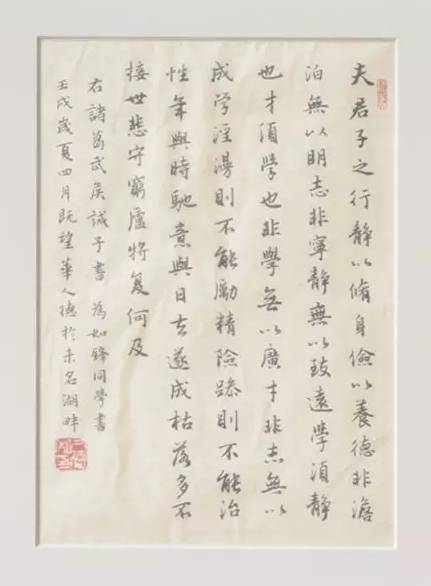 夫君子之行靜以脩身儉以養德非澹
泊無以明志非寧靜無以致遠學須靜
也才須學也非學無以廣才非志無以
成学淫湯則不能勵精險躁則不能治
性年與時馳意與日去遂成枯落多不
接世悲守窮廬將复何及
右諸葛武侯誡子書 為如鋒同學書
壬戌歲夏四月既望華人德於未名湖畔